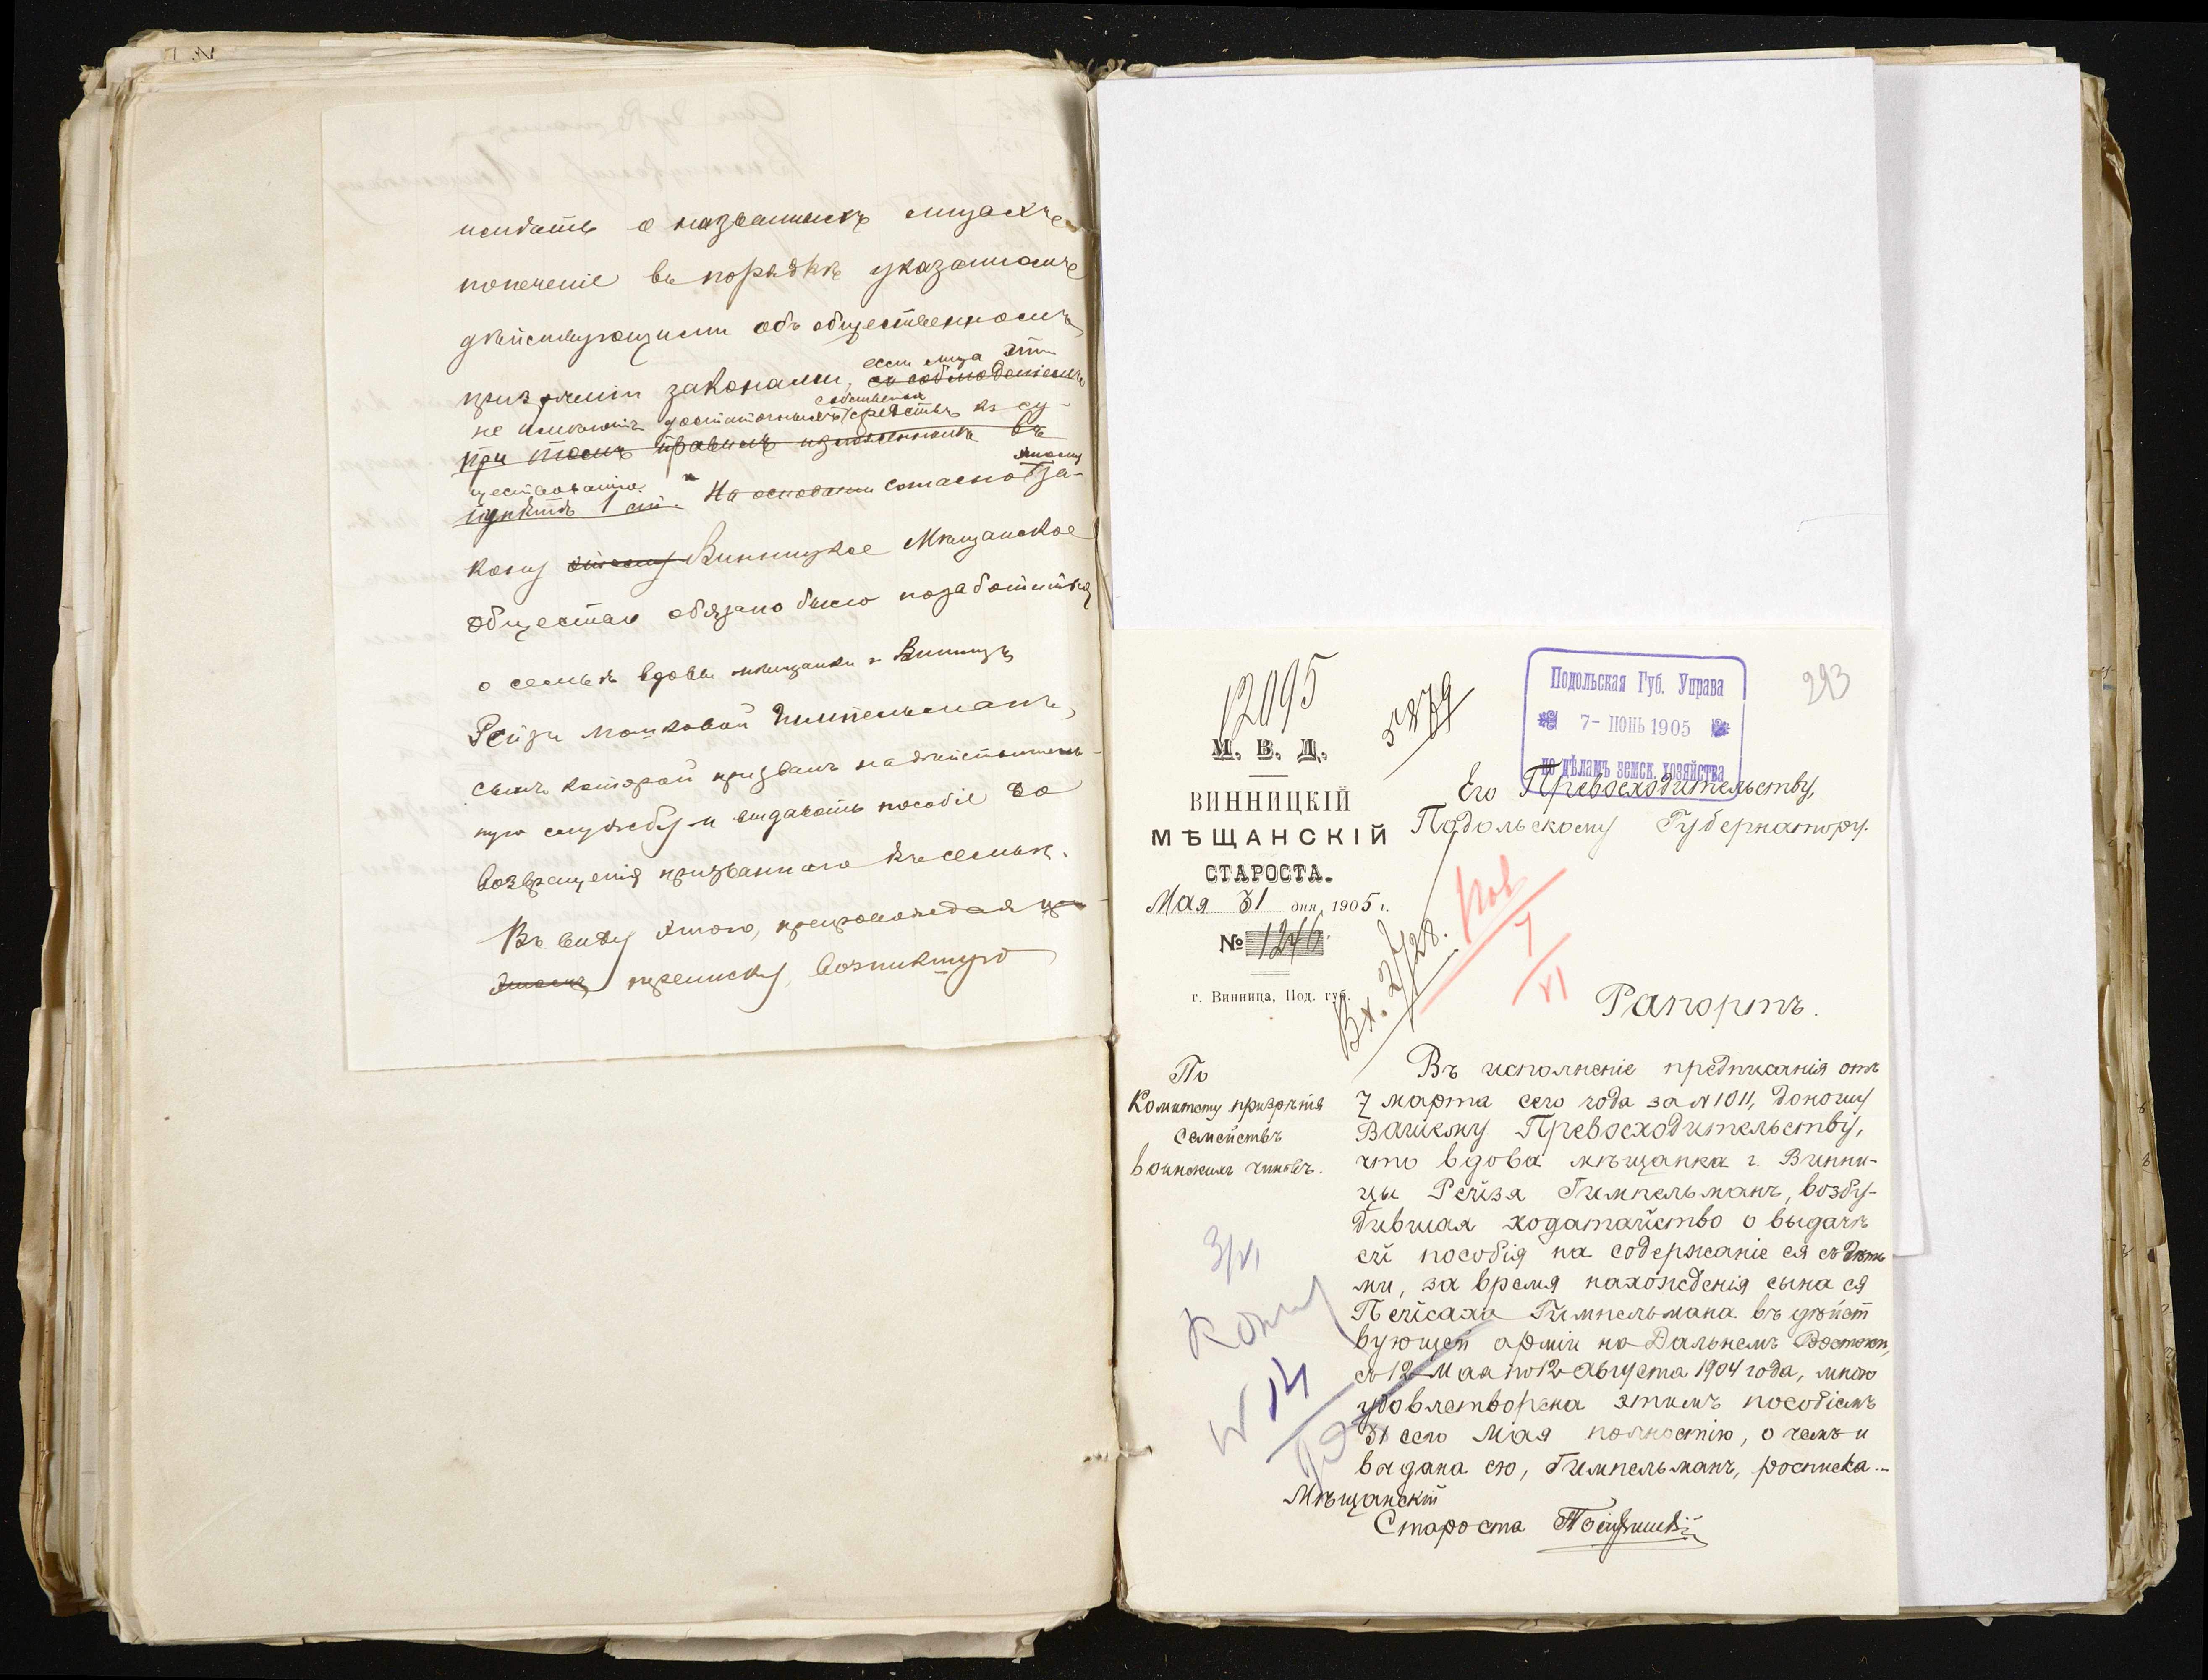 о названныхъ лицахъ
попеченіе въ порядкѣ указанномъ
дѣйствующими объ общественномъ
если лица эти
призрѣніи законами, съ соблюденіемъ
собственныхъ
не имѣютъ достаточныхъ средствъ къ су-
при томъ правилъ изложенныхъ въ
ществованію
пунктѣ 1 ст. На основаніи согласно За-
кону Винницкое Мѣщанское
Общество обязано было позаботиться
о семьѣ вдовы мѣщанки г. Винницы
Рейзи Мошковой Гимпельманъ,
сынъ которой призванъ на дѣйствитель-
ную службу и выдавать пособіе до
возвращенія призваннаго къ семьѣ.
Въ виду этого, препровождая
переписку, возникшую
12095
5879
Подольская Губ. Управа
7- ІЮНЬ 1905
по дѣламъ земск. хозяйства
293
М. В. Д.
ВИННИЦКІЙ
МѢЩАНСКІЙ
СТАРОСТА.
Мая 31 дня, 1905 г.
№ 1246
г. Винница, Под. губ.
Его Превосходительству,
Подольскому Губернатору.
Вх. 27/28.
7
VI
Рапортъ.
По
Комитету призрѣнія
Семействъ
воинскихъ чиновъ.
Въ исполненіе предписанія отъ
7 марта сего года за № 1011, доношу
Вашему Превосходительству,
что вдова мѣщанка г. Винни-
цы Рейзя Гимпельманъ, возбу-
дившая ходатайство о выдачѣ
ей пособія на содержаніе ея съ дѣть
ми, за время нахожденія сына ея
Пейсаха Гимпельмана въ дѣйст
вующей арміи на Дальнемъ Востокѣ,
съ 12 Мая по 12 Августа 1904 года, мною
удовлетворена этимъ пособіемъ
31 сего Мая полностію, о чемъ и
выдана ею, Гимпельманъ, росписка.-
Мѣщанскій
Староста